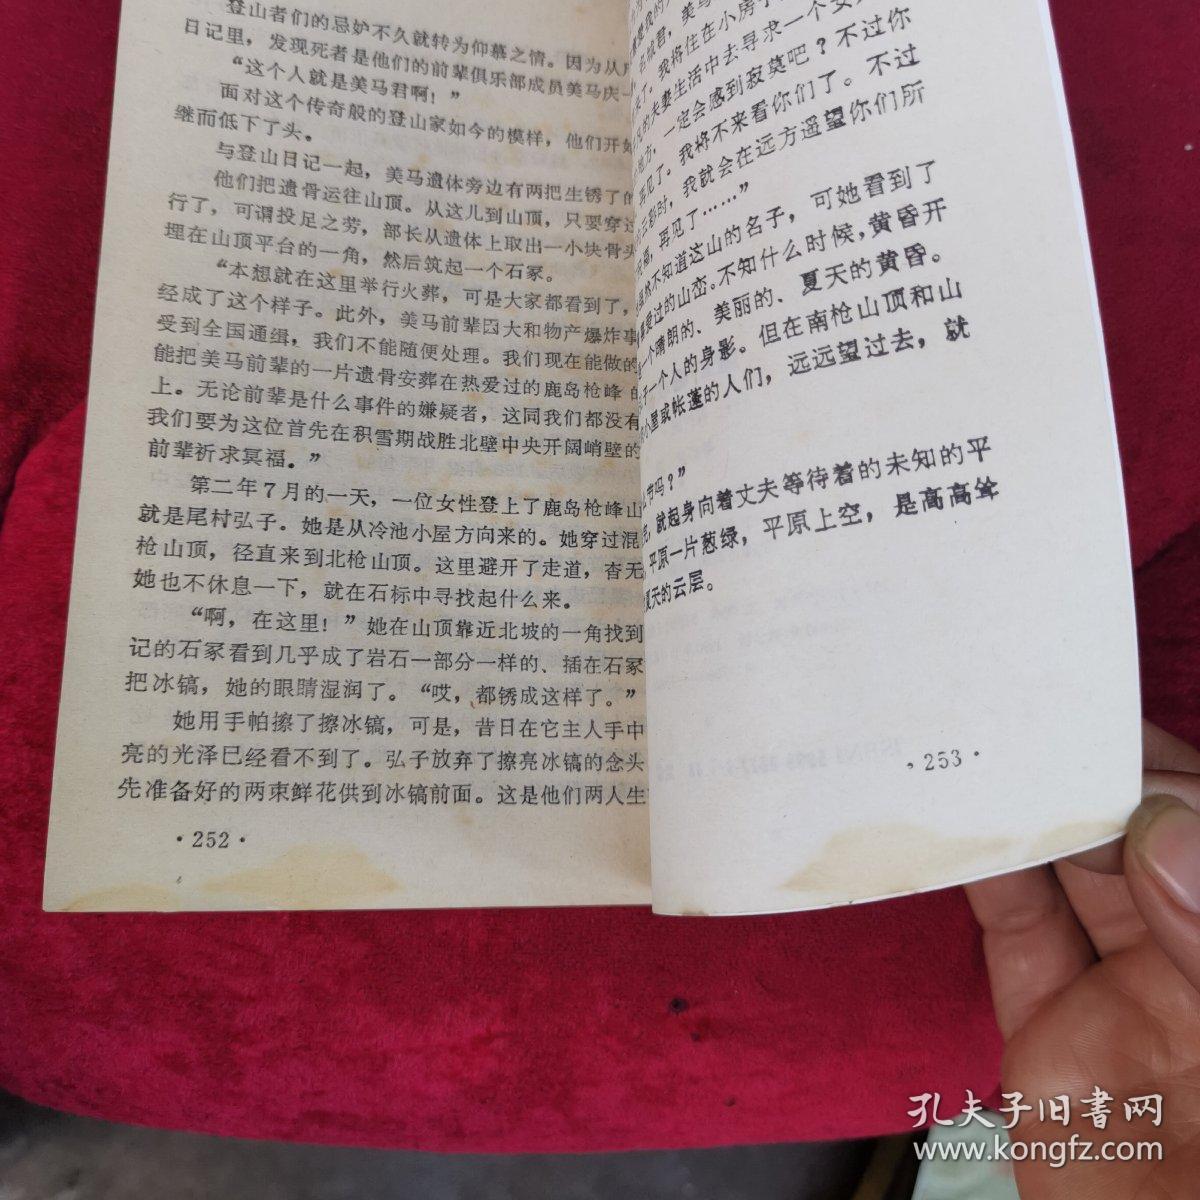 登山者们的忌妒不久就转为仰慕之情。因为从
日记里，发现死者是他们的前辈俱乐部成员美马庆一
“这个人就是美马君啊！”
面对这个传奇般的登山家如今的模样，他们开始
继而低下了头。
与登山日记一起，美马遗体旁边有两把生锈了的
他们把遗骨运往山顶。从这儿到山顶，只要穿过
行了，可谓投足之劳，部长从遗体上取出一小块骨头
理在山顶平台的一角，然后筑起一个石冢。
“本想就在这里举行火葬，可是大家都看到了，
经成了这个样子。此外，美马前辈因大和物产爆炸事
受到全国通缉，我们不能随便处理。我们现在能做的
能把美马前辈的一片遗骨安葬在热爱过的鹿岛枪峰的
上。无论前辈是什么事件的嫌疑者，这同我们都没有
我们要为这位首先在积雪期战胜北壁中央开阔峭壁的
前辈祈求冥福。”
第二年7月的一天，一位女性登上了鹿岛枪峰山
就是尾村弘子。她是从冷池小屋方向来的。她穿过混
枪山顶，径直来到北枪山顶。这里避开了走道，杳无
她也不休息一下，就在石标中寻找起什么来。
“啊，在这里！”她在山顶靠近北坡的一角找到
记的石冢看到几乎成了岩石一部分一样的、插在石冢
把冰镐，她的眼睛湿润了。“哎，都锈成这样了。”
她用手帕擦了擦冰镐，可是，昔日在它主人手中
亮的光泽已经看不到了。弘子放弃了擦亮冰镐的念头
先准备好的两束鲜花供到冰镐前面。这是他们两人生
·252·
君，美马
我将住在小房子
的夫妻生活中去寻求一个女
地方，一定会感到寂莫吧？不过你
再见了。我将不来看你们了。不过
云彩时，我就会在远方遥望你们所
福，再见了……”
然不知道这山的名子，可她看到了
爱过的山峦。不知什么时候，黄昏开
一个晴朗的、美丽的、夏天的黄昏。
于一个人的身影。但在南枪山顶和山
小屋或帐蓬的人们，远远望过去，就
节吗？”
完，就起身向着丈夫等待着的未知的平
平原一片葱绿，平原上空，是高高耸
夏天的云层。
253·
孔夫子旧书网
www.kongfz.com